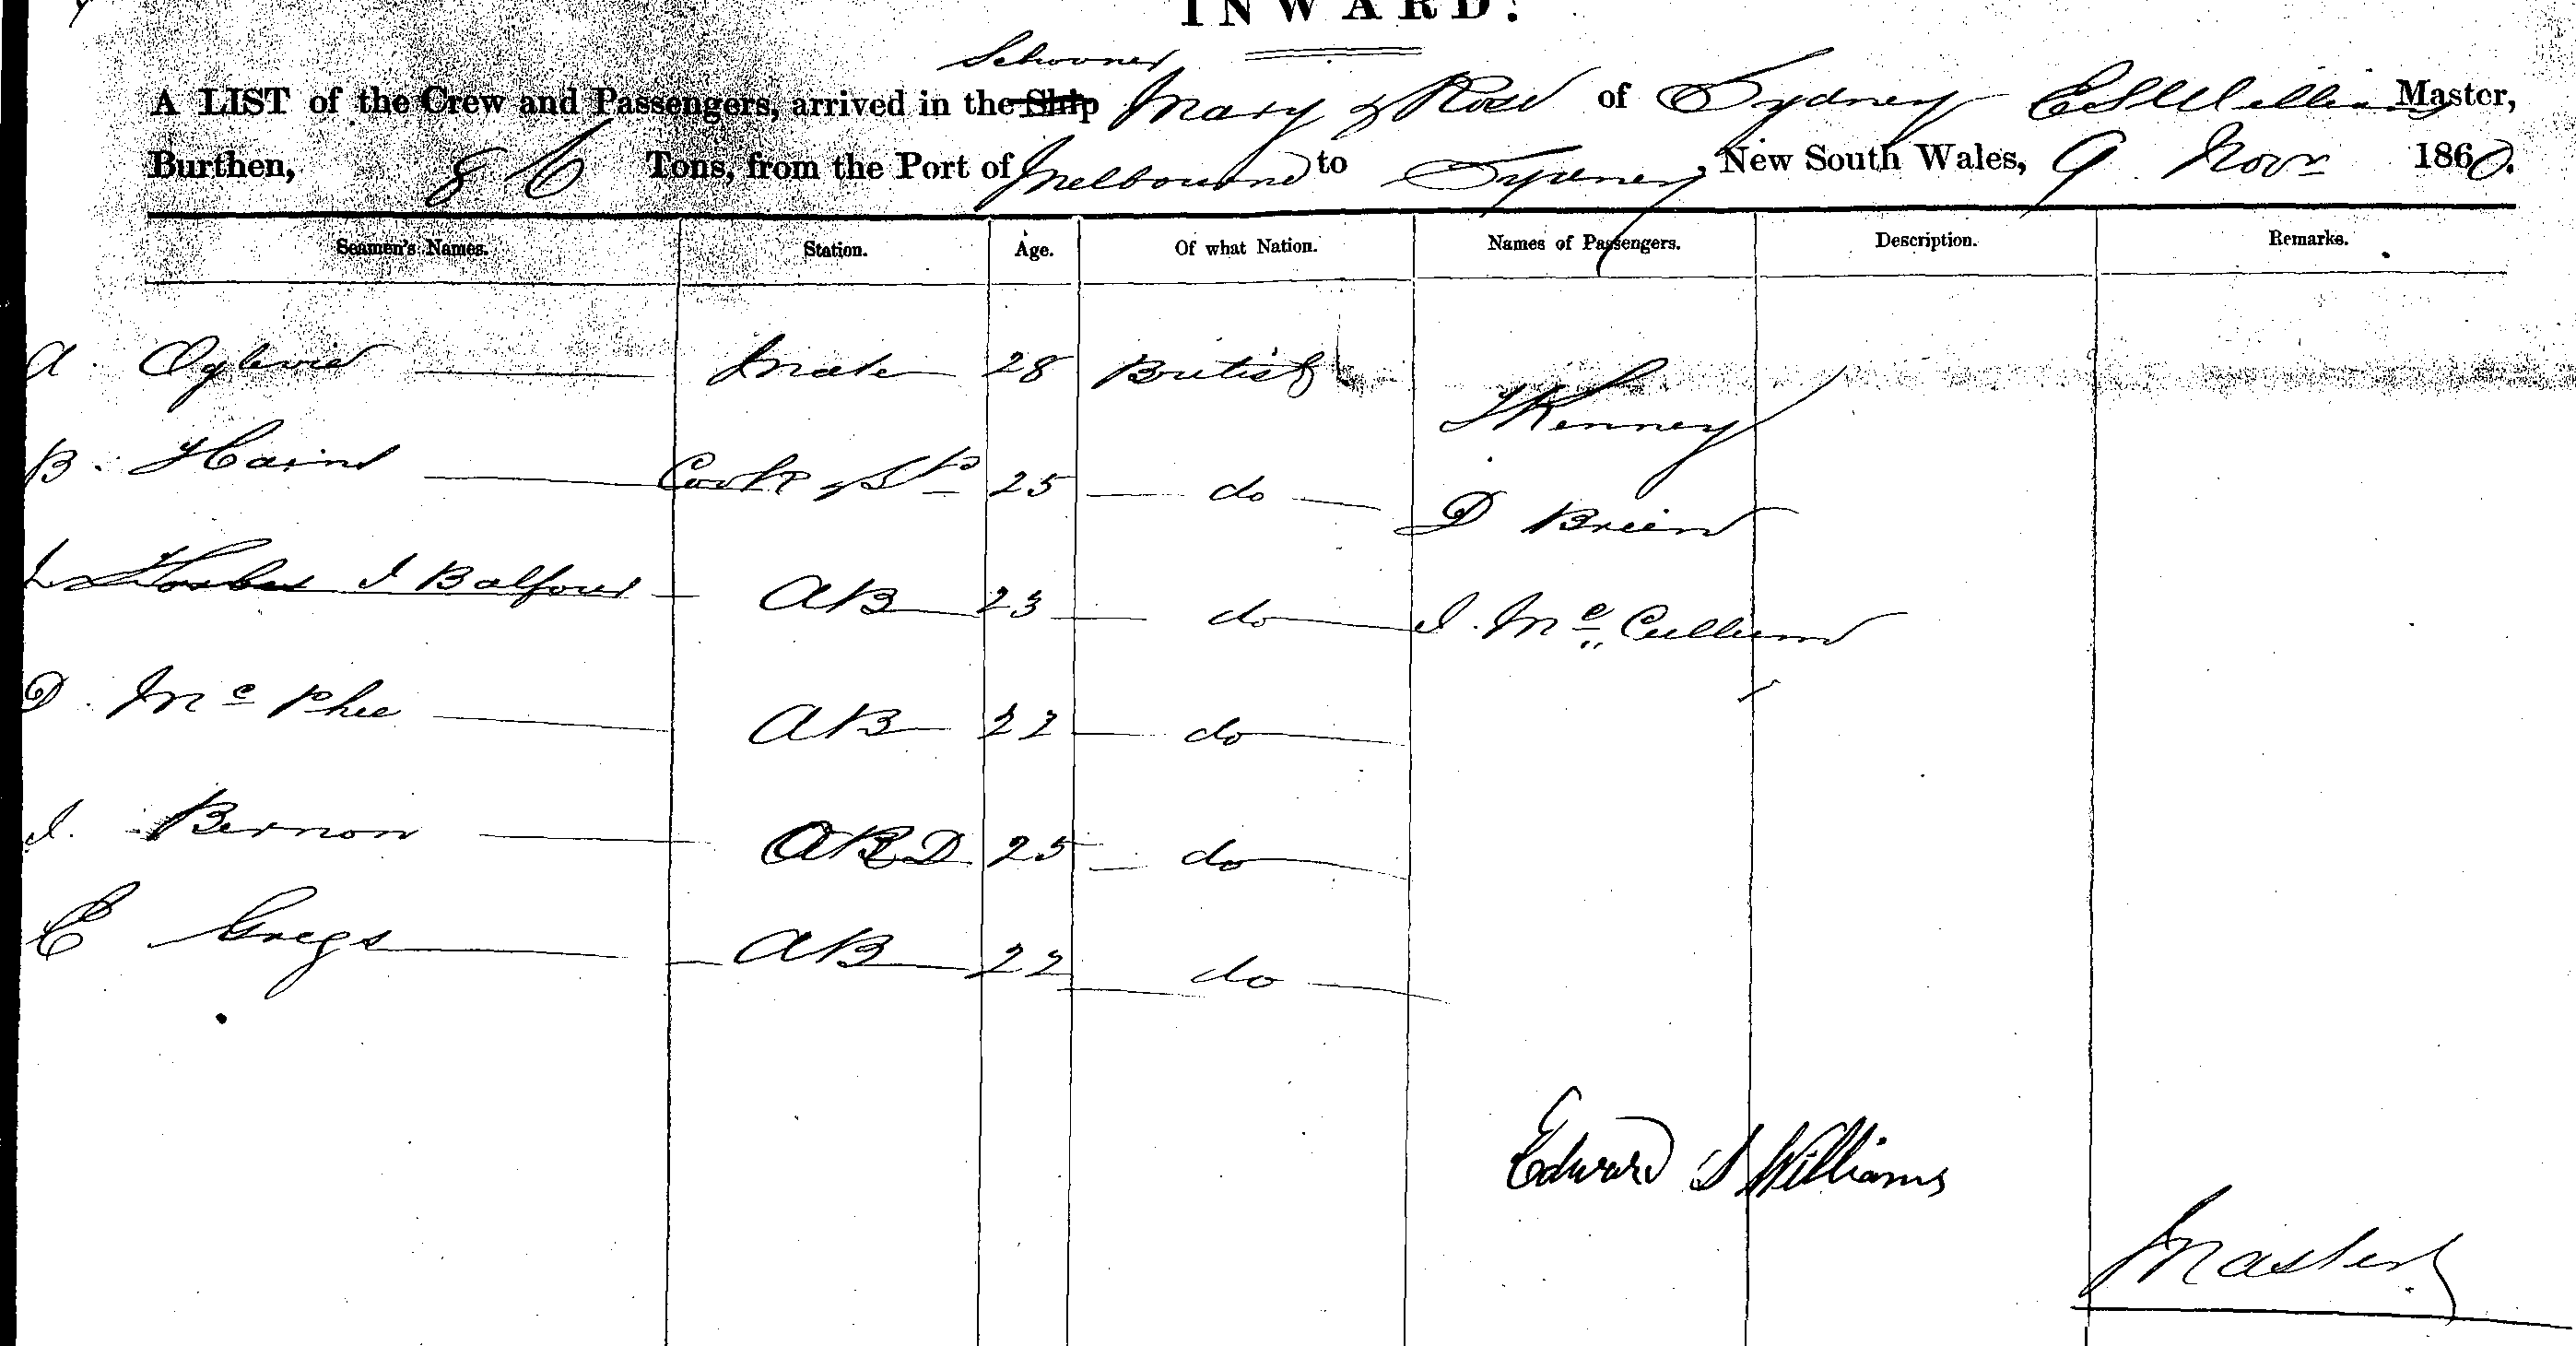 INWARD.
Schooner
A LIST of the Crew and Passengers, arrived in the Ship Mary & Rose of Sydney E S Williams Master,
Burthen, 86 Tons, from the Port of Melbourne to Sydney, New South Wales, 9 Novr 1860.
Seamen's Names. Station. Age. Of what Nation. Names of Passengers. Description. Remarks.
A. Oglevie Mate 28 British J Kenney
B. Cook & Std 25 do D Brien
J Balfour AB 23 do J. Mc Cullum
D. Mc Phee AB 22 do
J. Bernon AB 25 do
E Gregs AB 22 do
Edward S Williams
Master